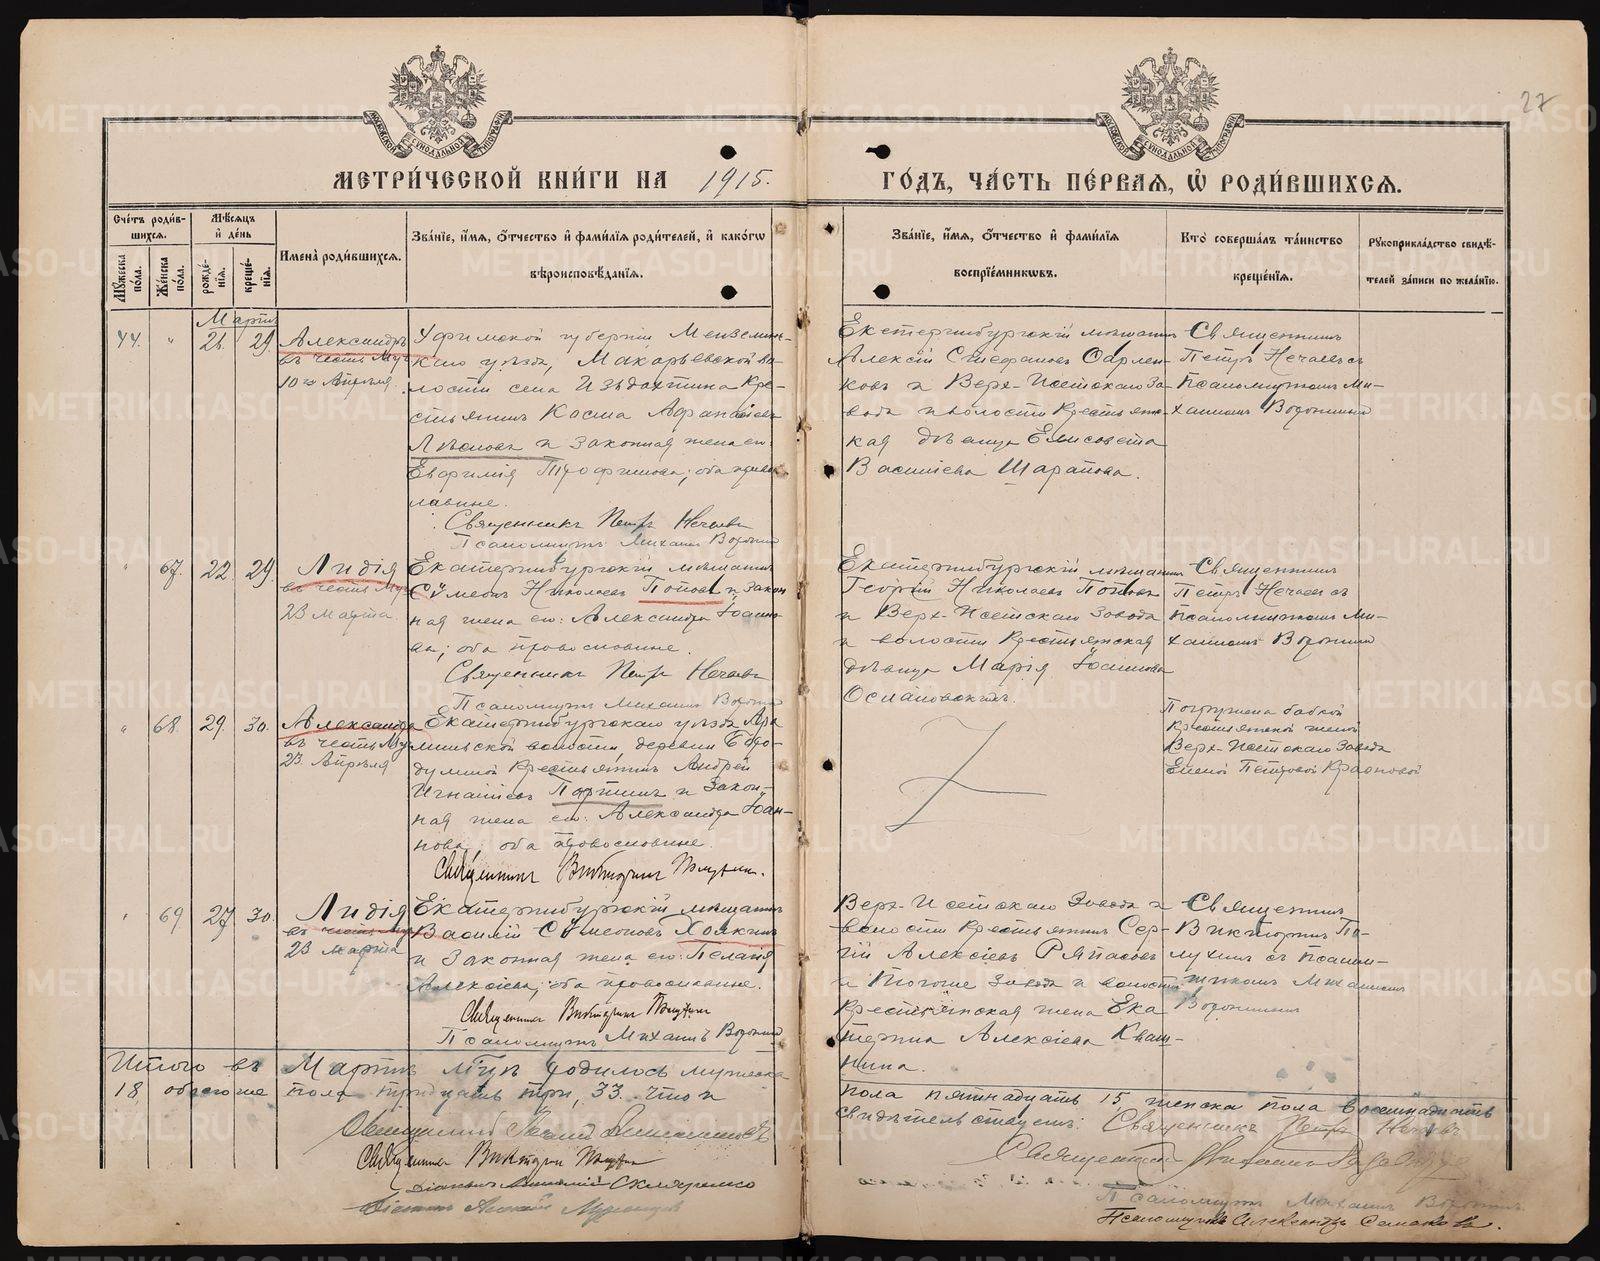 27
МОСКОВСКОЙ СѴНОДАЛЬНОЙ ТИПОГРАФІИ
МОСКОВСКОЙ СѴНОДАЛЬНОЙ ТИПОГРАФІИ
МЕТРИ́ЧЕСКОЙ КНИ́ГИ НА 1915.
ГО́ДЪ, ЧА́СТЬ ПЕ́РВАЯ, Ѡ РОДИ́ВШИХСЯ.
Сче́тъ роди́в-
шихся.
Мѣ́сяцъ
и҆ де́нь
Мꙋ́жеска по́ла.
Же́нска по́ла.
рожде́-
нїя.
креще́-
нїя.
И҆мена̀ роди́вшихся.
Зва́нїе, и҆́мя, ѻ҆́тчество и҆ фами́лїя роди́телей, и҆ како́гѡ
вѣроисповѣ́данїя.
Зва́нїе, и҆́мя, ѻ҆́тчество и҆ фами́лїя
воспрїе́мникѡвъ.
Кто̀ соверша́лъ та́инство
креще́нїя.
Рꙋкоприкла́дство свидѣ́-
телей за́писи по жела́нїю.
Мартъ
44. " 21. 29. Александръ
въ честь Муч.
10го Апрѣля.
Уфимской губерніи Мензелин-
скаго уѣзда, Макарьевской во-
лости села кре-
стьянинъ Косма Аѳанасіевъ
и законная жена его:
Евфимія Трофимова; оба право-
славные.
Священникъ Петръ Нечаевъ
Псаломщикъ Михаилъ Воронинъ
Екатеринбургскій мѣщанинъ
Алексій Стефановъ
и Верх-Исетскаго За-
вода и волости крестьянс-
кая дѣвица Елисавета
Василіева Шарапова.
Священникъ
Петръ Нечаевъ съ
Псаломщикомъ Ми-
хаиломъ Воронинымъ
" 67. 22. 29. Лидія
въ честь Муч.
23 марта.
Екатеринбургскій мѣщанинъ
Сѵмеонъ Николаевъ Поповъ и закон-
ная жена его: Александра Іоанно-
ва; оба православные.
Священникъ Петръ Нечаевъ
Псаломщикъ Михаилъ Воронинъ
Екатеринбургскій мѣщанинъ
Георгій Николаевъ Поповъ
и Верх-Исетскаго Завода
и волости крестьянская
дѣвица Марія Іоаннова
Священникъ
Петръ Нечаевъ съ
Псаломщикомъ Ми-
хаиломъ Воронинымъ
" 68. 29. 30. Александра
въ честь Муч.
23 Апрѣля
Екатеринбургскаго уѣзда Ара-
мильской волости, деревни
крестьянинъ Андрей
Игнатіевъ и закон-
ная жена его: Александра Іоан-
нова; оба православные.
Священникъ Викторинъ
Погружена бабкой
крестьянской женой
Верх-Исетскаго Завода
Еленой Петровой
" 69 27. 30. Лидія
въ честь Муч.
23 марта
Екатеринбургскій мѣщанинъ
Василій Сѵмеоновъ
и законная жена его: Пелагія
Алексіева; оба православные.
Священникъ Викторинъ
Псаломщикъ Михаилъ Воронинъ
Верх-Исетскаго Завода и
волости крестьянинъ Сер-
гій Алексіевъ Ряпасовъ
и того же Завода и волости
крестьянская жена Ека-
терина Алексіева Кваш-
нина.
Священникъ
Викторинъ
съ Псалом-
щикомъ Михаиломъ
Воронинымъ
Итого въ Мартѣ м-цѣ родилось мужеска
пола пятнадцать 15 женска пола восемнадцать
18, обоего же пола тридцать три, 33. Что и
свидѣтельствуемъ: Священникъ Петръ Нечаевъ
Священникъ
Священникъ Викторинъ
Діаконъ Скляренко
Діаконъ
Псаломщикъ Михаилъ Воронинъ
Псаломщикъ Александръ